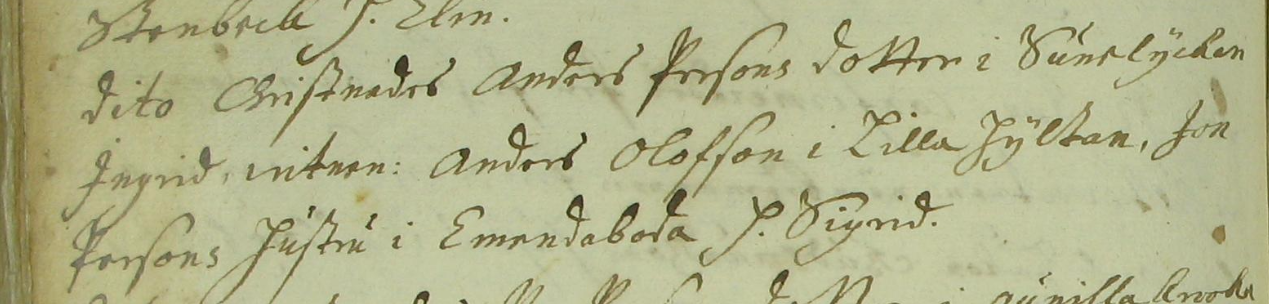 Stenbeck H. Elin.
dito Christnades Anders Persons dotter i Sunelycken
Ingrid, witnen: Anders Olofson i Lilla Hyltan, Jon
Persons Hustru i Emmdaboda H. Sigrid.